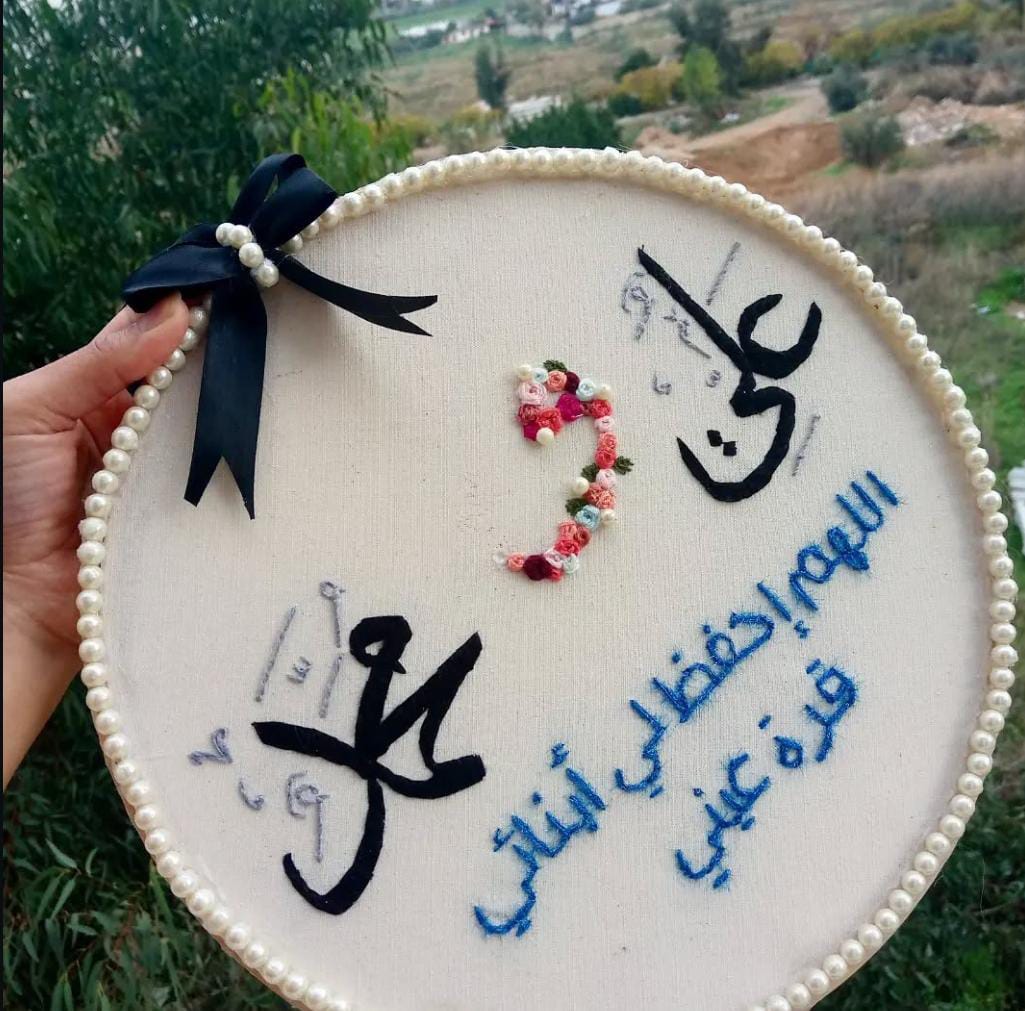 علي
و
اللهم إحفظ لي أبنائي
قرة عيني